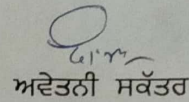 ਅਵੇਤਨੀ ਸਕੱਤਰ